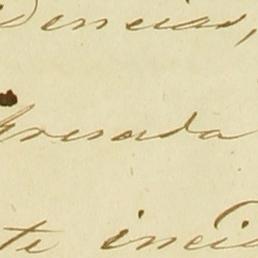 dencias,
gresada
te incid